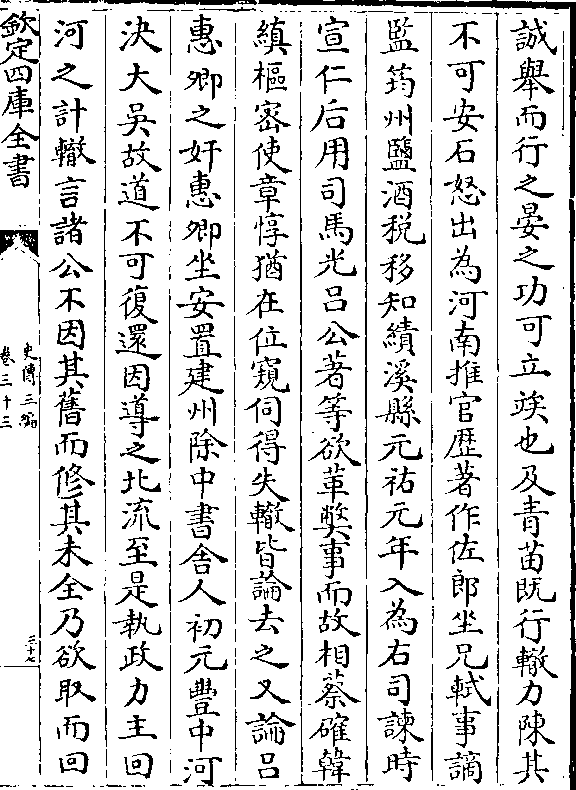 誠舉而行之晏之功可立竢也及青苗既行轍力陳其
不可安石怒出為河南推官歴著作佐郎坐兄軾事謫
監筠州鹽酒税移知績溪縣元祐元年入為右司諫時
宣仁后用司馬光吕公著等欲革弊事而故相蔡確韓
縝樞密使章惇猶在位窺伺得失轍皆論去之又論吕
惠卿之奸惠卿坐安置建州除中書舍人初元豐中河
決大吳故道不可復還因導之北流至是執政力主回
河之計轍言諸公不因其舊而修其未全乃欲取而回
欽定四庫全書
史傳三編
卷三十三
三十七